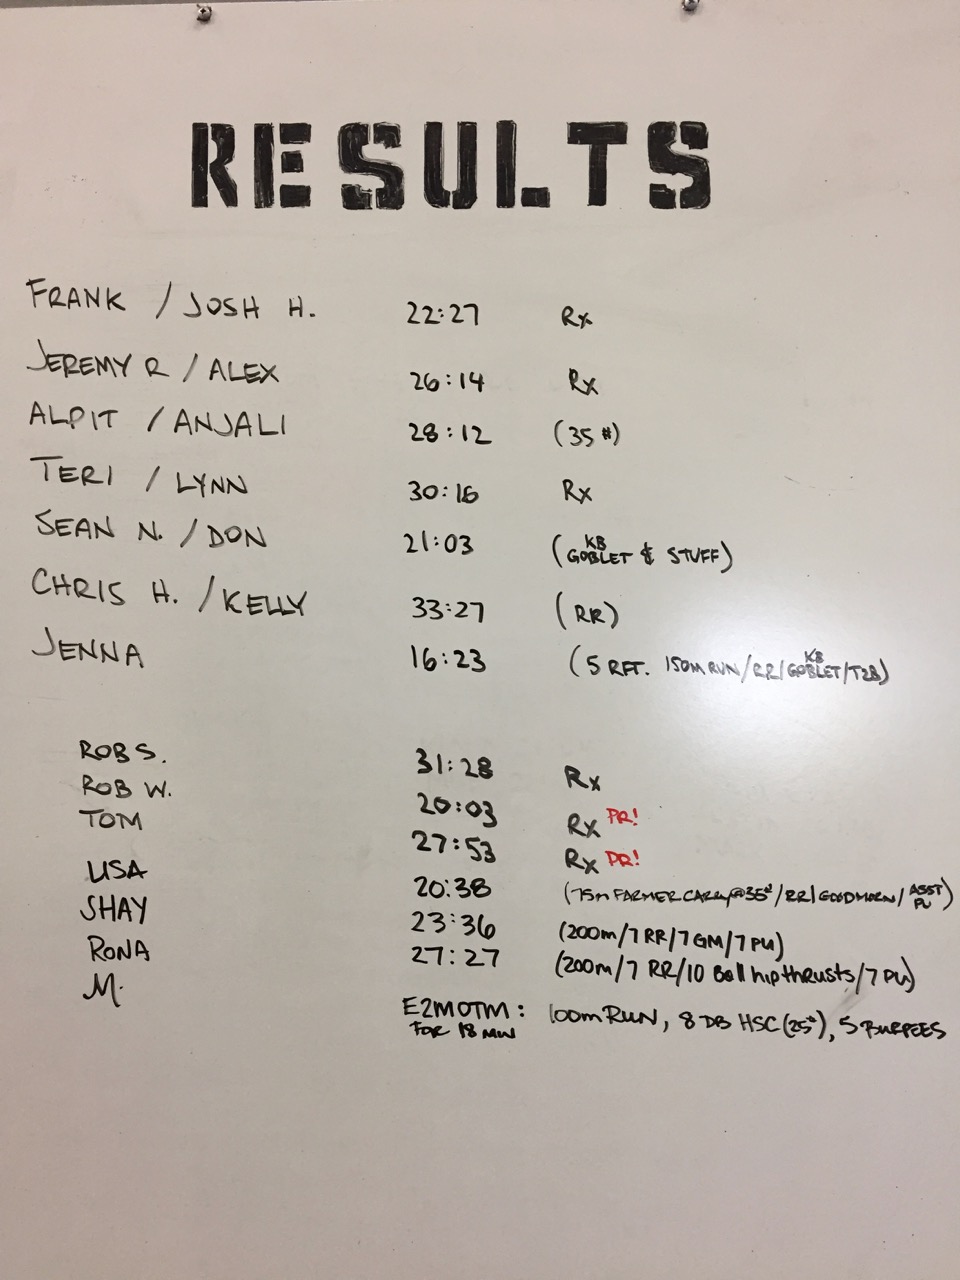 RESULTS
FRANK / JOSH H. 22:27 Rx
JEREMY R / ALEX 26:14 Rx
ALPIT / ANJALI 28:12 (35 #)
TERI / LYNN 30:16 Rx
SEAN N. / DON 21:03 (KB GOBLET & STUFF)
CHRIS H. / KELLY 33:27 (RR)
JENNA 16:23 (5 RFT. 150M RUN/RR/KB GOBLET/T2B)
ROB S. 31:28 Rx
ROB W. 20:03 Rx PR!
TOM 27:53 Rx PR!
LISA 20:38 (75m FARMER CARRY@35#/RR/GOODMORN/ASST PU)
SHAY 23:36 (200m/7 RR/7 GM/7 PU)
RONA 27:27 (200m/7 RR/10 Bell hip thrusts/7 PU)
M. E2MOTM: 100m RUN, 8 DB HSC (25#), 5 BURPEES
FOR 18 MIN